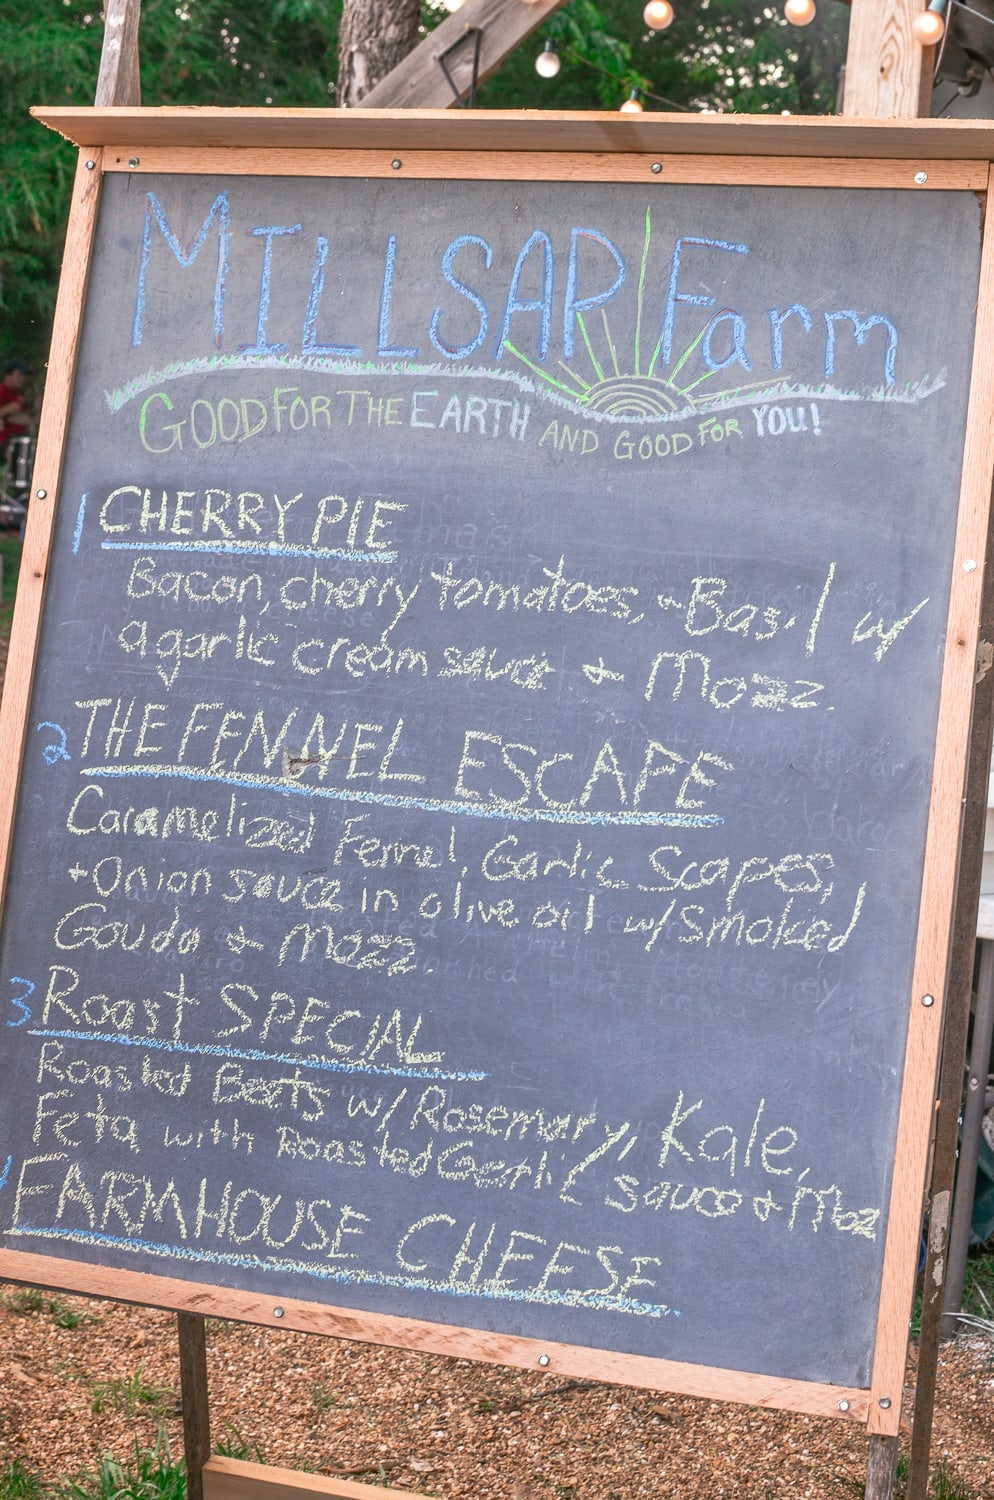 MILLSAP Farm
GOOD FOR THE EARTH AND GOOD FOR YOU!
1 CHERRY PIE
Bacon, cherry tomatoes, Basil w/
a garlic cream sauce + Mozz.
2 THE FENNEL ESCAPE
Caramelized Fennel, Garlic Scapes,
+ Onion sauce in olive oil w/ Smoked
Gouda + Mozz.
3 Roast SPECIAL
Roasted Beets w/ Rosemary, Kale,
Feta with Roasted Garlic sauce + Moz
FARMHOUSE CHEESE